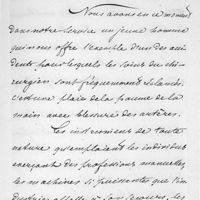 Nous avons en ce moment
dans notre service un jeune homme
qui nous offre l'exemple d'un des acci-
dents pour lesquels les soins du chi-
rurgien sont fréquemment réclamés.
c'est une plaie de la paume de la
main avec blessure des artères.
Les instruments de toute
nature qu'emploient les individus
exerçant des professions manuelles,
les machines si puissantes que l'in-
dustrie appelle à son secours, les